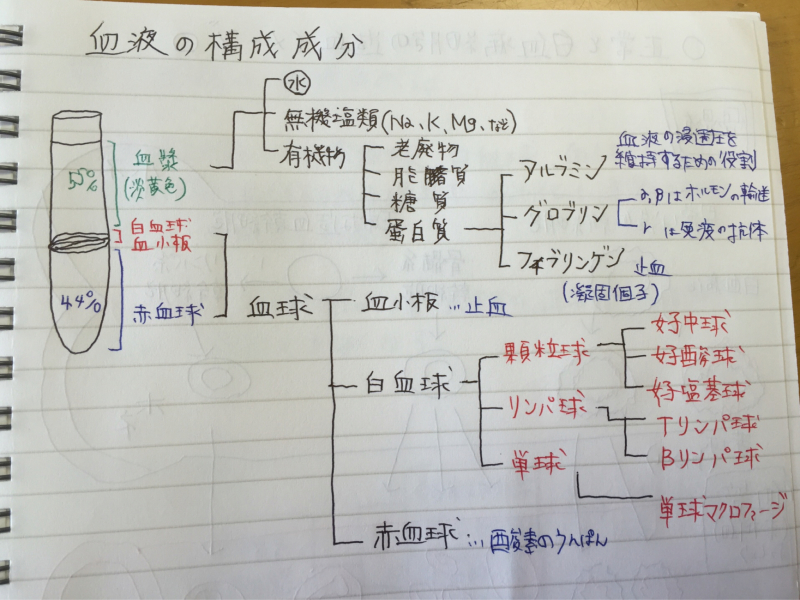 血液の構成成分
水
無機塩類(Na、K、Mg、など)
有機物
老廃物
脂臓質
糖質
蛋白質
アルブミン
血液の浸固圧を
維持するための役割
グロブリン
α,βはホルモンの輸送
rは免疫の抗体
フォブリンゲン 止血
(凝固個子)
55%
血漿
(淡黄色)
白血球
血小板
44%
赤血球
血球
血小板…止血
白血球
顆粒球
好中球
好酸球
好塩基球
リンパ球
Tリンパ球
Bリンパ球
単球
単球マクロファージ
赤血球…酸素のうんぱん